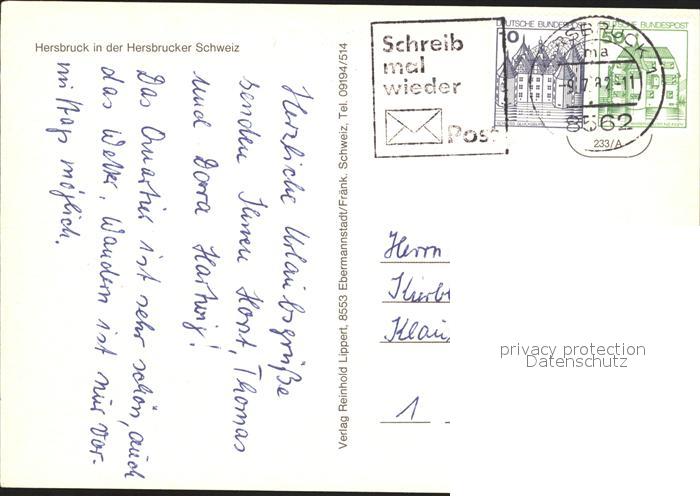 Hersbruck in der Hersbrucker Schweiz
Herzliche Urlaubsgrüße
senden Ihnen Horst, Thomas
und Dora Hartwig!
Das Quartier ist sehr schön, auch
das Wetter. Wandern ist nur vor-
mittags möglich.
Verlag Reinhold Lippert, 8553 Ebermannstadt/Fränk. Schweiz, Tel. 09194/514
Schreib
mal
wieder
Post
DEUTSCHE BUNDESPOST
10
DEUTSCHE BUNDESPOST
50
8562
233/A
Herrn
1
privacy protection
Datenschutz